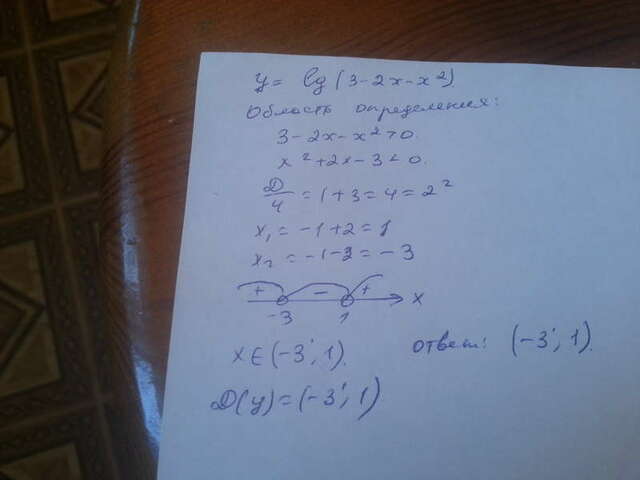 y = lg(3-2x-x²).
Область определения:
3-2x-x²>0.
x²+2x-3<0.
D/4 = 1+3=4=2²
x₁ = -1+2=1
x₂ = -1-2=-3
+ - + x
-3 1
x∈(-3; 1).
ответ: (-3; 1).
D(y)=(-3; 1)